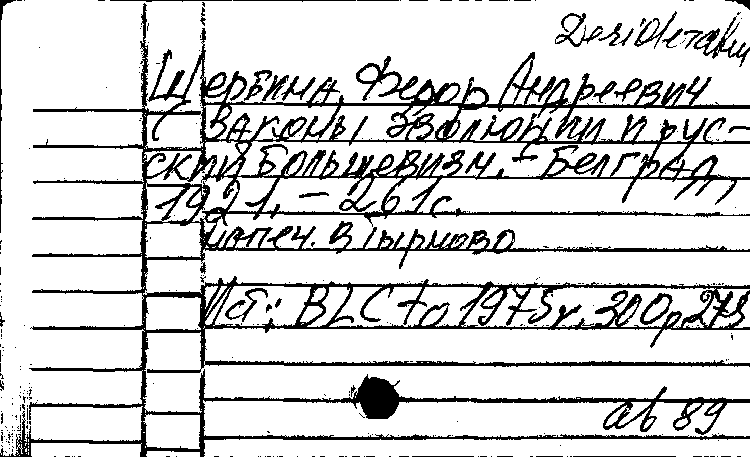 Desiderata
Щербина, Федор Андреевич
Законы эволюции и рус-
ский большевизм. - Белград,
1921. - 261с.
Напеч. в Тырново
Ист.: BLC to 1975 v. 300 p 273
ab 89